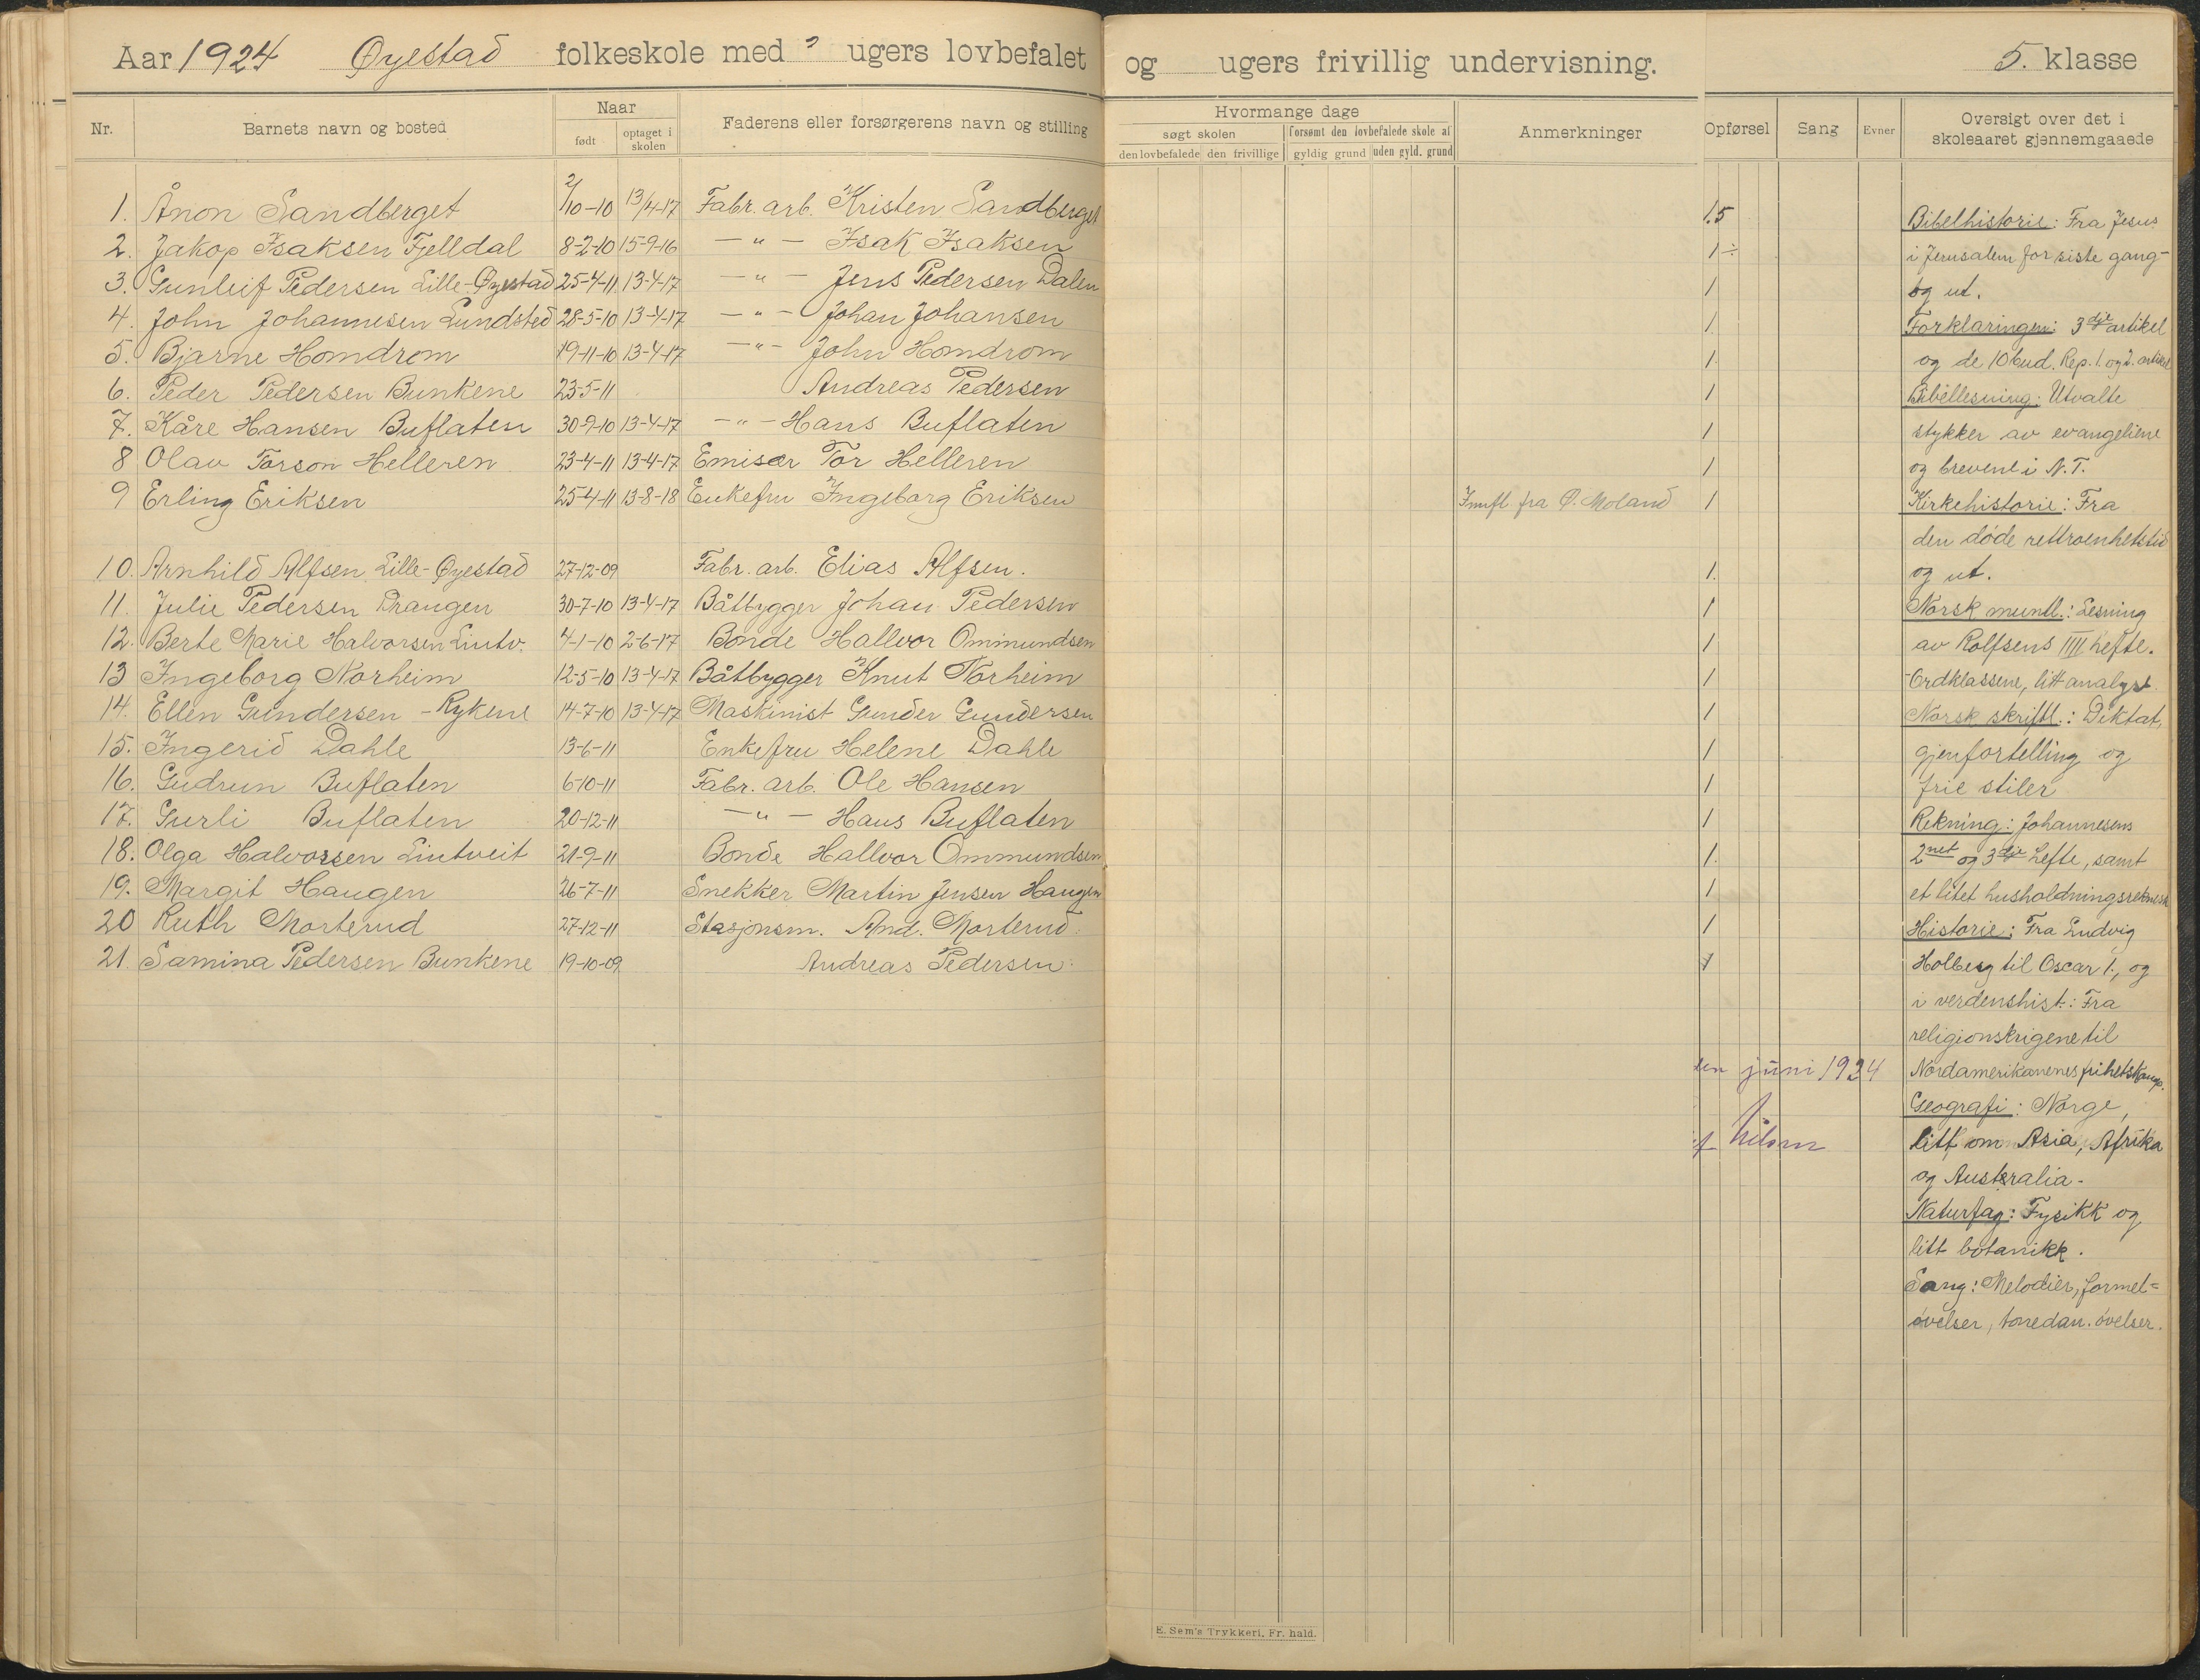 Aar 1924 Øyestad folkeskole med ugers lovbefalet og ugers frivillig undervisning. 5. klasse
Nr. Barnets navn og bosted Naar født optaget i skolen Faderens eller forsørgerens navn og stilling
Hvormange dage søgt skolen den lovbefalede den frivillige forsømt den lovbefalede skole af gyldig grund uden gyld. grund Anmerkninger Opførsel Sang Evner Oversigt over det i skoleaaret gjennemgaaede
1. Ånon Sandberget 2/10-10 13/4-17 Fabr. arb. Kristen Sandberget 1.5
2. Jakop Isaksen Fjelldal 8-2-10 15-9-16 — " — Isak Isaksen 1 ÷
3. Gunleif Pedersen Lille-Øyestad 25-4-11 13-4-17 — " — Jens Pedersen Dalen 1
4. John Johannesen Lundsted 28-5-10 13-4-17 — " — Johan Johansen 1
5. Bjarne Homdrom 19-11-10 13-4-17 — " — John Homdrom 1
6. Peder Pedersen Bunkene 23-5-11 Andreas Pedersen 1
7. Kåre Hansen Buflaten 30-9-10 13-4-17 — " — Hans Buflaten 1
8 Olav Torson Helleren 23-4-11 13-4-17 Emisær Tor Helleren 1
9 Erling Eriksen 25-4-11 13-8-18 Enkefru Ingeborg Eriksen Innfl. fra Ø. Moland 1
10. Arnhild Alfsen Lille-Øyestad 27-12-09 Fabr. arb. Elias Alfsen. 1.
11. Julie Pedersen Drangen 30-7-10 13-4-17 Båtbygger Johan Pedersen 1
12. Berte Marie Halvorsen Lintv. 4-1-10 2-6-17 Bonde Hallvor Ommundsen 1
13 Ingeborg Norheim 12-5-10 13-4-17 Båtbygger Knut Norheim 1
14. Ellen Gundersen - Rykene 14-7-10 13-4-17 Maskinist Gunder Gundersen 1
15. Ingerid Dahle 13-6-11 Enkefru Helene Dahle 1
16. Gudrun Buflaten 6-10-11 Fabr. arb. Ole Hansen 1
17. Gurli Buflaten 20-12-11 — " — Hans Buflaten 1
18. Olga Halvorsen Lintveit 21-9-11 Bonde Hallvor Ommundsen 1.
19. Margit Haugen 26-7-11 Snekker Martin Jensen Haugen 1
20 Ruth Morterud 27-12-11 Stasjonsm. And. Morterud. 1
21. Samina Pedersen Bunkene 19-10-09 Andreas Pedersen. 1
juni 1924
Nilsen
Bibelhistorie: Fra Jesus
i Jerusalem for siste gang-
og ut.
Forklaringen: 3dje artikel
og de 10 bud. Rep. 1. og 2. artikel
Bibellesning: Utvalte
stykker av evangeliene
og brevene i N.T.
Kirkehistorie: Fra
den døde rettroenhetstid
og ut.
Norsk muntl.: Lesning
av Rolfsens IIII hefte.
Ordklassene, litt analyse.
Norsk skriftl.: Diktat,
gjenfortelling og
frie stiler
Rekning: Johannesens
2net og 3dje hefte, samt
et litet husholdningsreknesk
Historie: Fra Ludvig
Holberg til Oscar 1., og
i verdenshist.: Fra
religionskrigene til
Nordamerikanenes frihetskamp.
Geografi: Norge,
litt om Asia, Afrika
og Australia.
Naturfag: Fysikk og
litt botanikk.
Sang: Melodier, formel=
øvelser, tonedan. øvelser.
E. Sem's Trykkeri, Fr. hald.